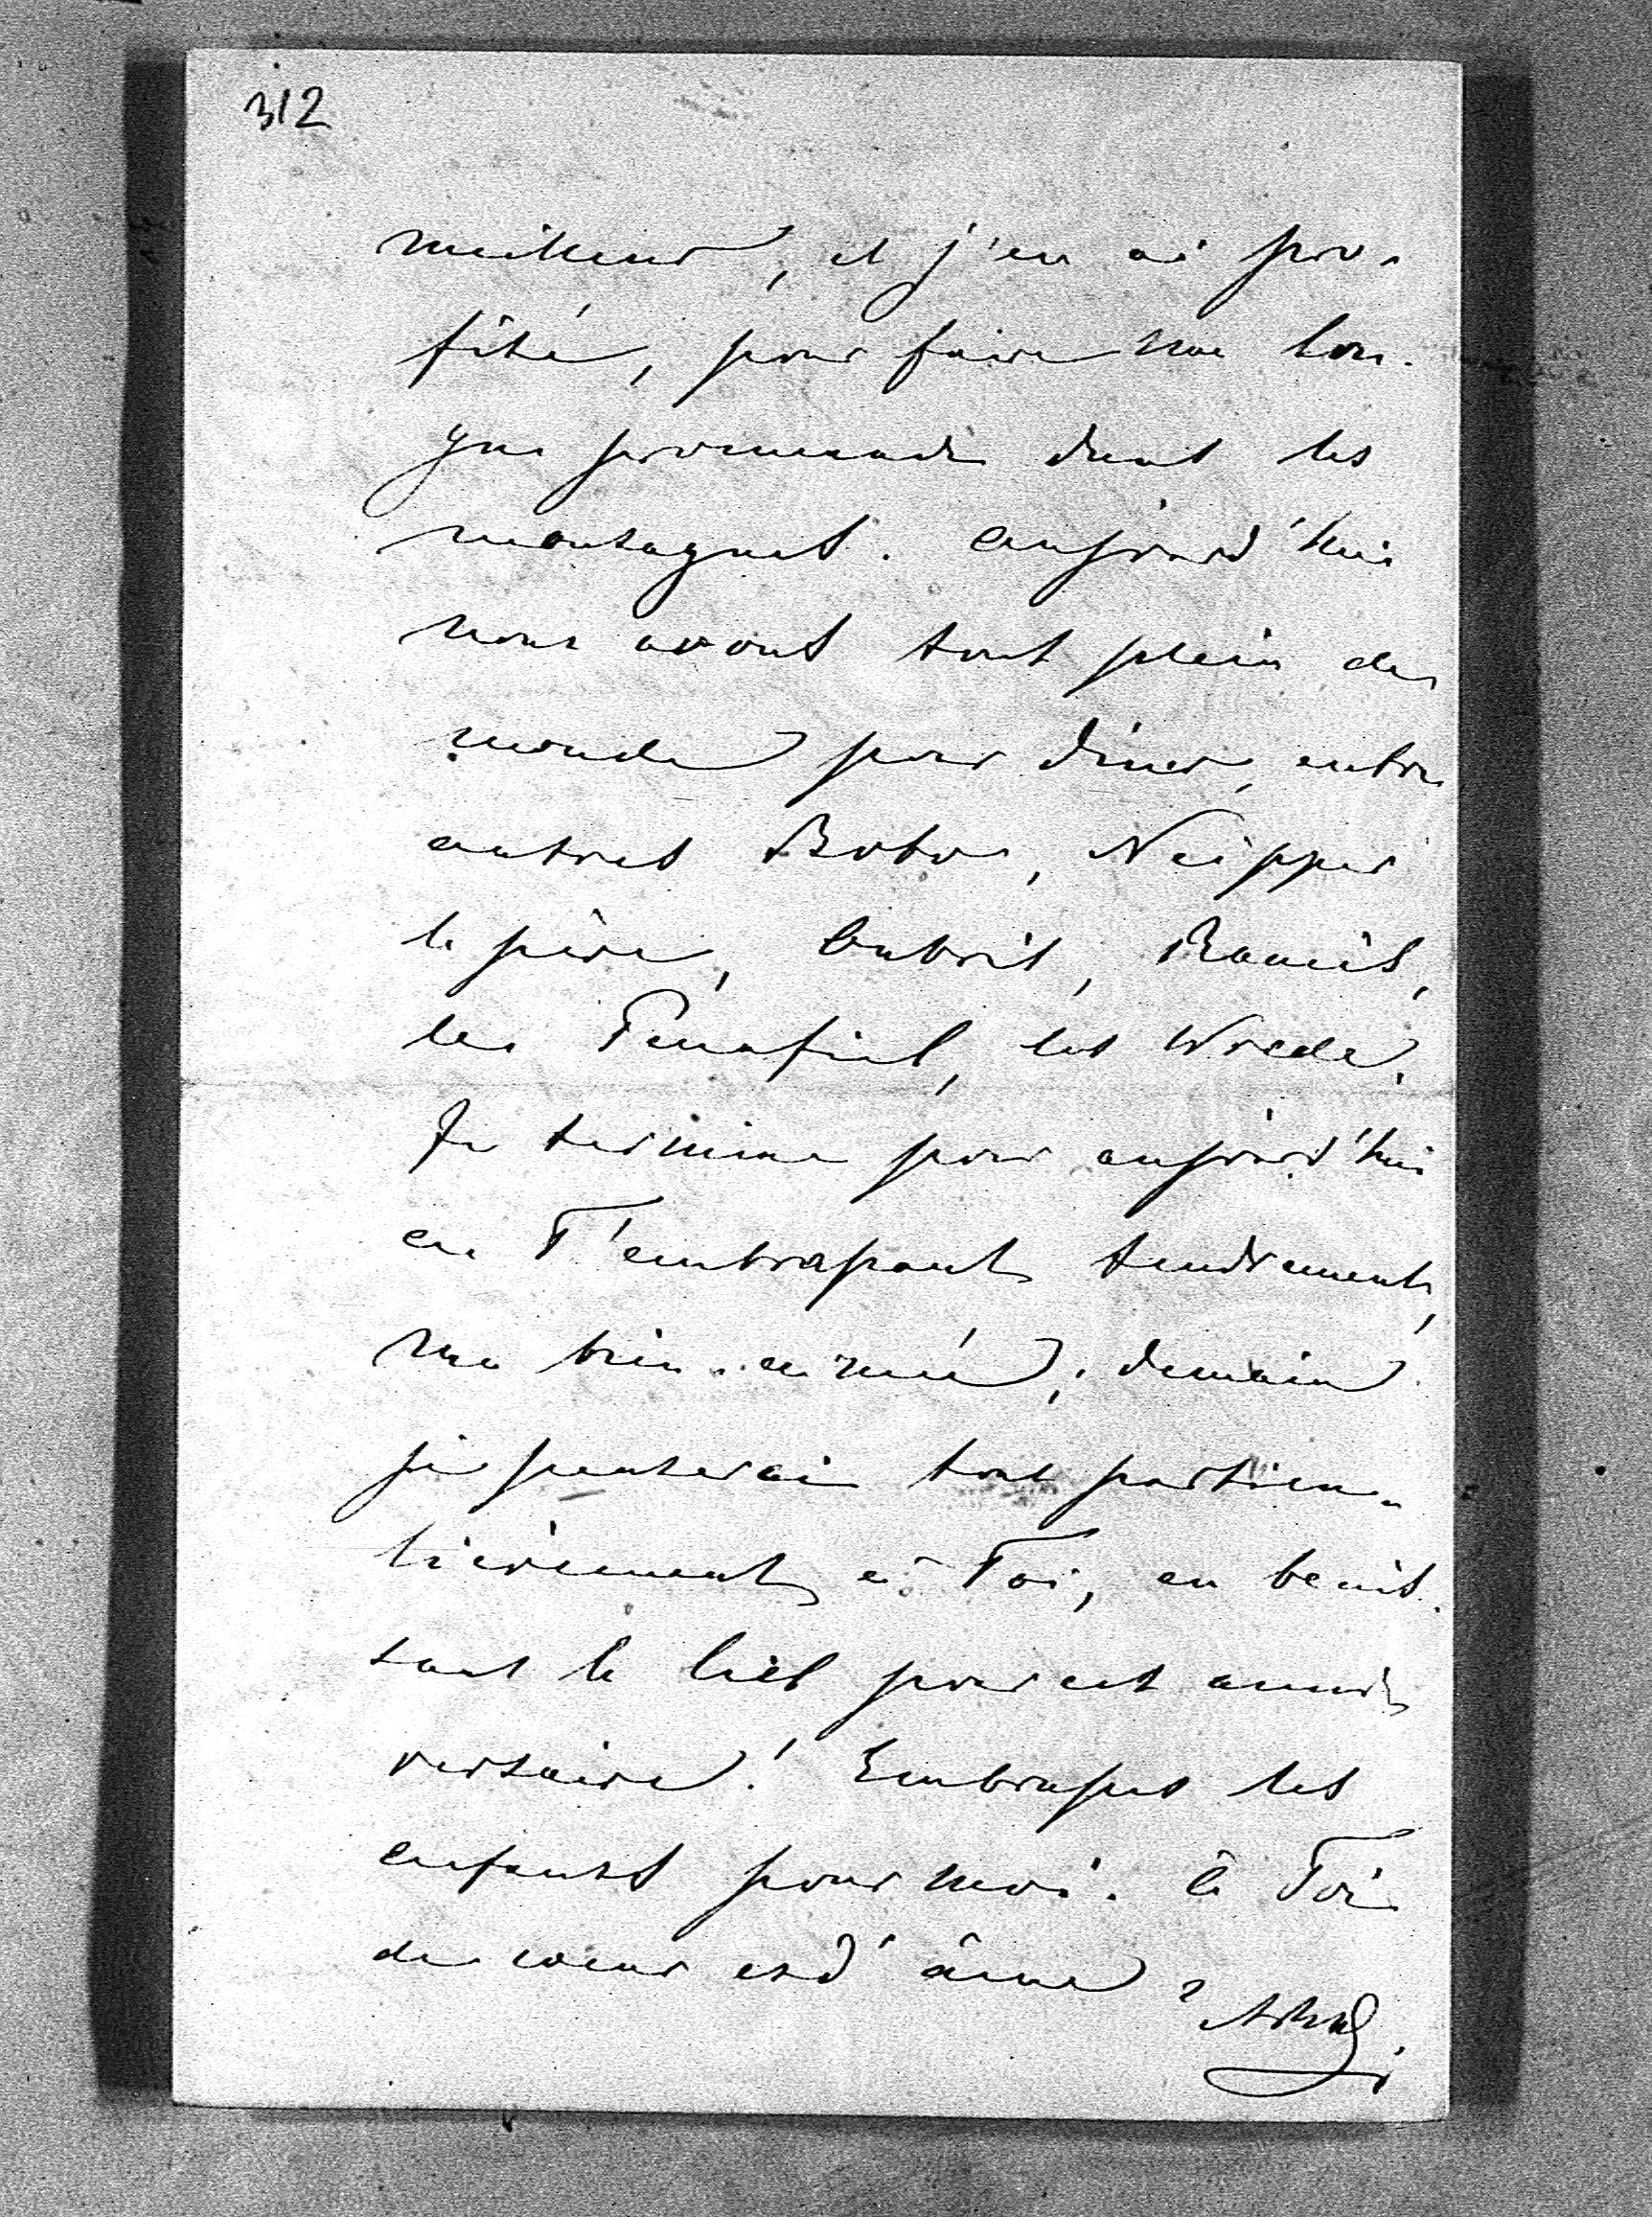 312
meilleur, et j'en ai pro-
fité, pour faire une lon-
gue promenade dans les
montagnes. Aujourd'hui
nous avons tout plein de
monde pour diner, entre
autres Neipper
le père, Oubril,
les Penafiel, les Wrede.
Je termine pour aujourd'hui
en T'embrassant tendrement,
ma bien-aimée; demain
je penserai tout particu-
lièrement à Toi, en benis-
sant le Ciel pour cet anni-
versaire! Embrasses les
enfants pour moi. à Toi
de cœur et d'âme